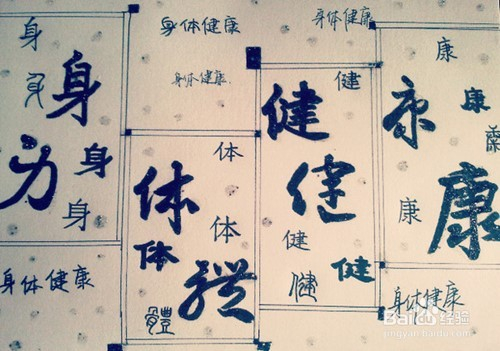 身
身
身
身
身
身
身体健康
身体健康
身体健康
体
体
体
体
体
體
健
健
健
健
健
健
康
康
康
康
康
康
身体健康
身体健康
Baidu经验
jingyan.baidu.com